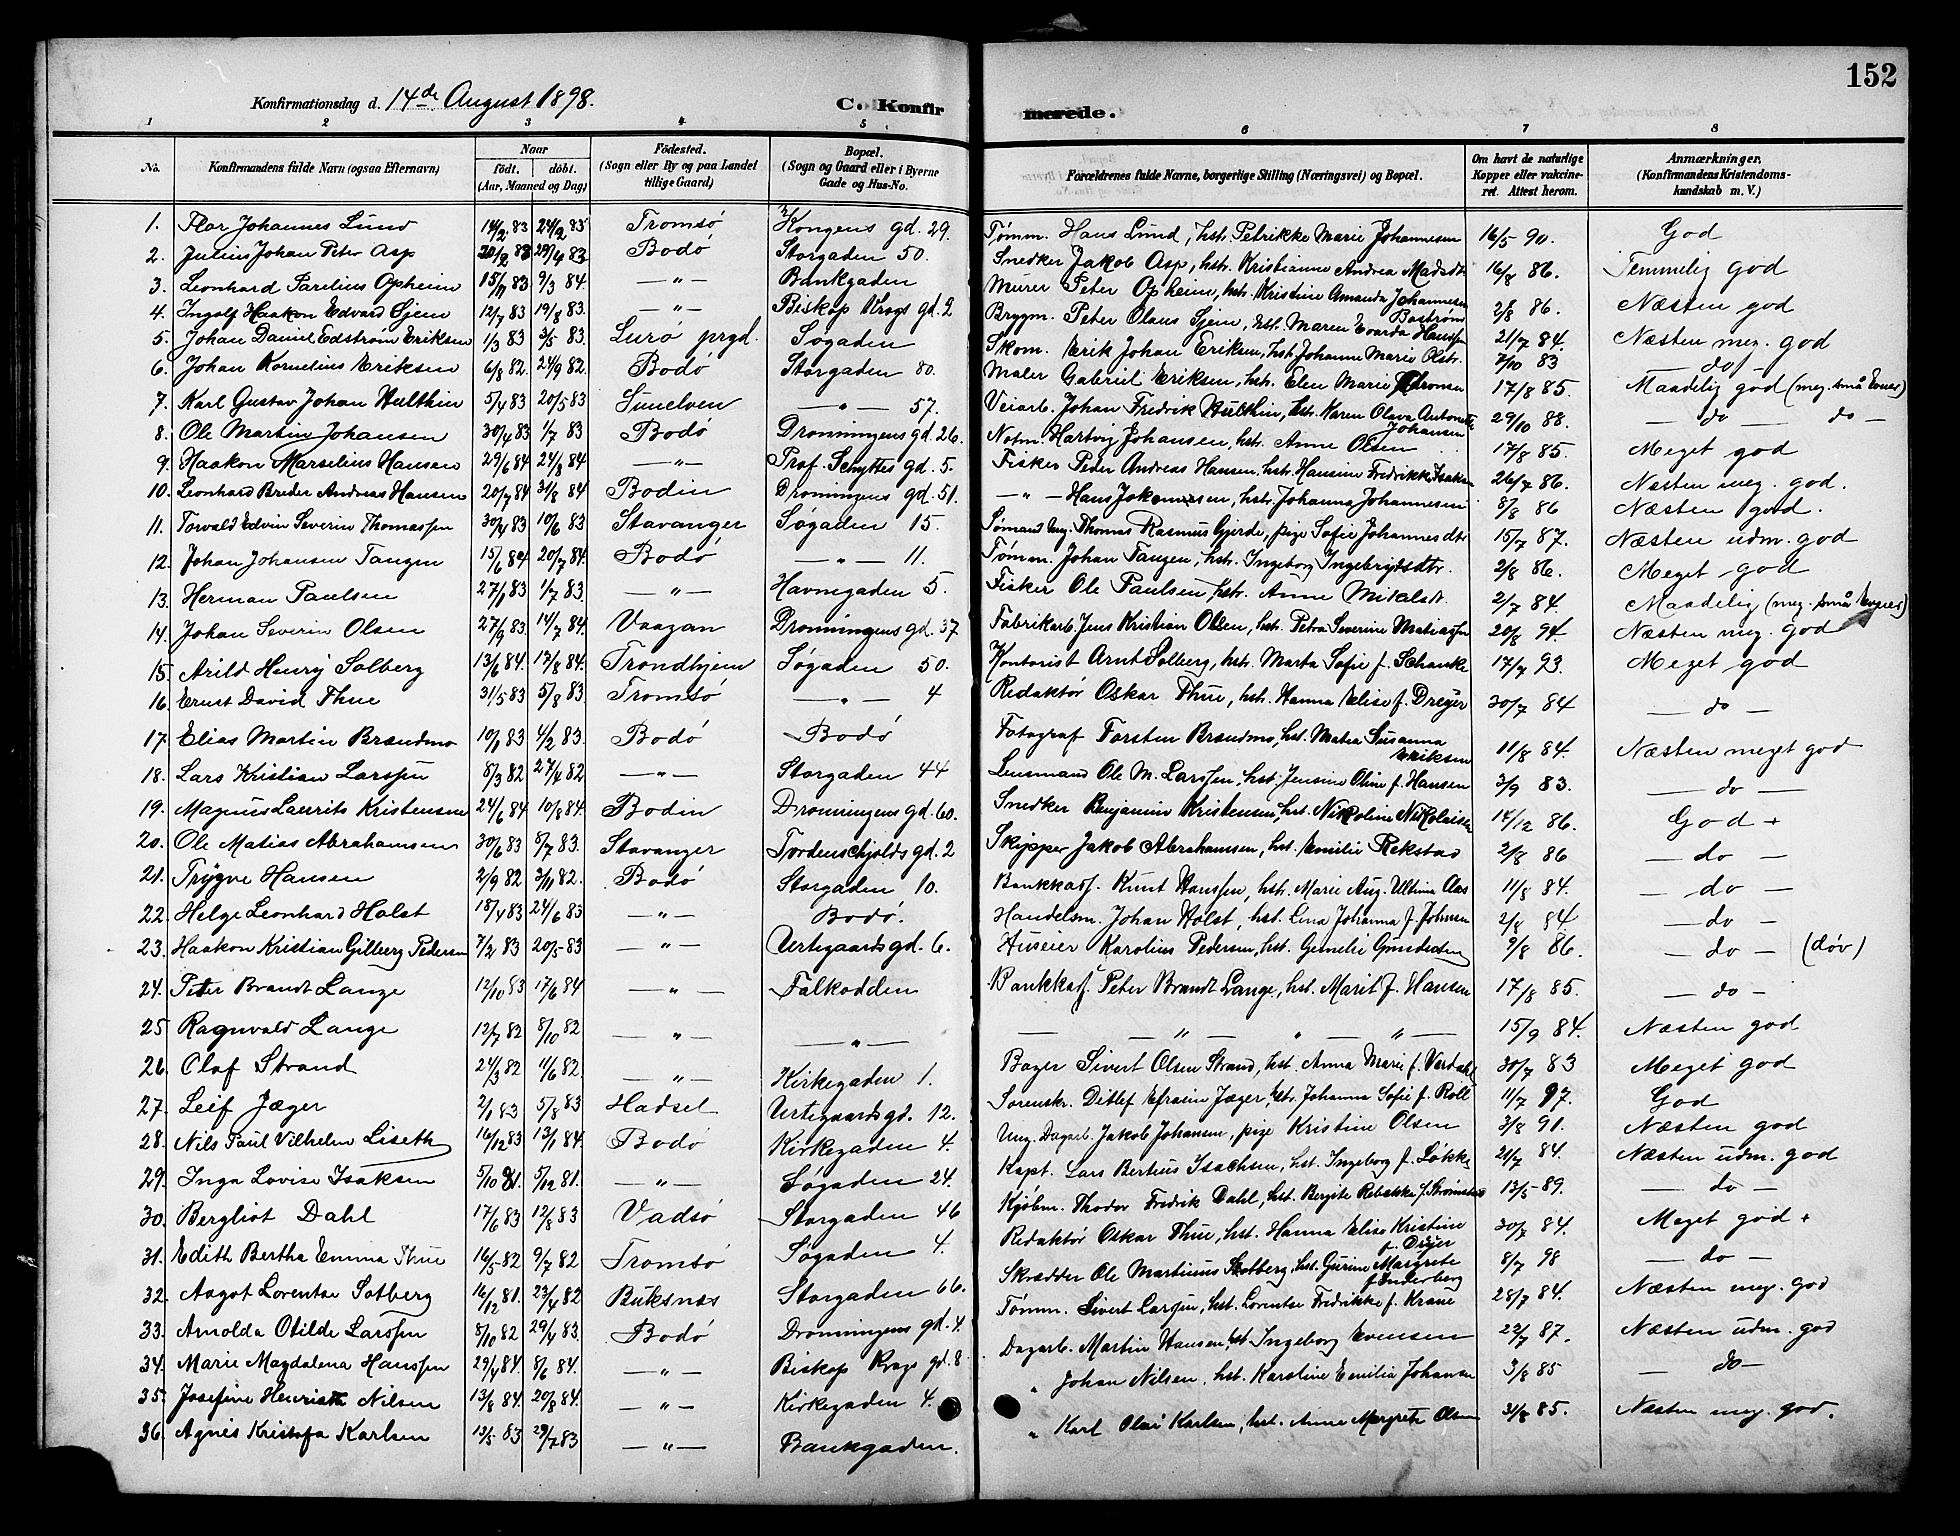 152
Konfirmationsdag d. 14de August 1898. C. Konfirmerede.
1 2 3 4 5 6 7 8
No. Konfirmandens fulde Navn (ogsaa Efternavn) Naar født. døbt. (Aar, Maaned og Dag) Fødested. (Sogn eller By og paa Landet tillige Gaard) Bopæl. (Sogn og Gaard eller i Byerne Gade og Hus-No. Forældrenes fulde Navne, borgerlige Stilling (Næringsvei) og Bopæl. Om havt de naturlige Kopper eller vaccineret. Attest herom. Anmærkninger. (Konfirmandens Kristendomskundskab m. V.)
1. Johannes Lund 14/2 83 24/2 85 Tromsö Kongens gd. 29. Tømm. Hans Lund, hst. Petrikke Marie Johannesen 16/5 90. God
2. Julius Johan Peter Asp 83 29/4 83 Bodö Storgaden 50. Snedker Jakob Asp, hst. Kristianne Andrea Madsdtr 16/8 86. Temmelig god
3. Leonhard Parelius Opheim 15/11 83 9/3 84. — " — Bankgaden Murer Peter Opheim, hst. Kristine Amanda Johannesen 2/8 86. Næsten god
4. Ingolf Haakon Edvard Sjem 12/7 83 19/8 83. — " — Biskop Krogs gd. 2 Brygm. Peter Olaus Sjem, hst. Maren Evarda Hanssen 21/7 84. Næsten meg. god
5. Johan Daniel Edstrøm Eriksen 1/3 83 3/5 83. Lurö prgd. Søgaden Skom. Erik Johan Eriksen, hst. Johanne Marie Olstr. 7/10 83 — do —
6. Johan Kornelius Eriksen 6/8 82. 24/9 82 Bodö Storgaden 80. Maler Gabriel Eriksen, hst. Elen Marie 17/8 85. Maadelig god (meg. små Evner)
7. Karl Gustav Johan Hulthin 5/4 83 20/5 83 Sunelven — " — 57. Veiarb. Johan Fredrik Hulthin, hst. Karen Olava Antonette Johansen 29/10 88. — do — do —
8. Ole Martin Johansen 30/4 83 1/7 83 Bodö Dronningens gd. 26. Notm. Hartvig Johansen, hst. Anne Olsen 17/8 85. Meget god
9. Haakon Marselius Hansen 29/6 84 24/8 84 — " — Prof. Schyttes gd. 5. Fisker Peder Andreas Hansen, hst. Hansine Fredrikke Isaksen 26/7 86. Næsten meg. god.
10. Leonhard Breder Andreas Hansen 20/7 84 31/8 84 Bodin Dronningens gd. 51. — " — Hans Johannesen, hst. Johanna Johannesen 8/8 86 Næsten god.
11. Torvald Edvin Severin Thomassen 30/4 83 10/6 83 Stavanger Søgaden 15. Sømand Ung. Thomas Rasmus Gjerde, pige Sofie Johannesdtr 15/7 87. Næsten udm. god
12. Johan Johansen Tangen 15/6 84 20/7 84. Bodö — " — 11. Tømm. Johan Tangen, hst. Ingeborg Ingebrigtsdtr. 2/8 86. Meget god
13. Herman Paulsen 27/1 83 1/7 83. — " — Havnegaden 5. Fisker Ole Paulsen, hst. Anne Mikalsdt. 2/7 84. Maadelig (meg. små Evner)
14. Johan Severin Olsen 27/9 83. 14/7 84. Vaagan Dronningens gd. 37. Fabrikarb. Jens Kristian Olsen, hst. Petra Severine Matiassen 20/8 94. Næsten meg. god
15. Arild Henry Solberg 13/6 84. 13/8 84. Trondhjem Søgaden 50. Kontorist Arnt Solberg, hst. Marta Sofie f. Schanke 17/7 93. Meget god
16. Ernst David Thue 31/5 83 5/8 83 Tromsö — " — 4 Redaktør Oskar Thue, hst. Hanna Elise f. Dreyer 30/7 84 — do —
17. Elias Martin Brændmo 10/1 83 4/2 83. Bodö Bodö Fotograf Torsten Brændmo, hst. Matea Susanna Eriksen 11/8 84. Næsten meget god
18. Lars Kristian Larssen 8/3 82 27/4 82 — " — Storgaden 44 Lensmand Ole M. Larssen, hst. Jensine Oline f. Hansen 3/9 83. — do —
19. Magnus Laurits Kristensen 24/6 84 10/8 84. Bodin Dronningens gd. 60. Snedker Benjamin Kristensen, hst. Nikoline Nikolaisen 14/12 86. God +
20. Ole Matias Abrahamsen 30/6 83 8/7 83. Stavanger Tordenschjolds gd. 2 Skipper Jakob Abrahamsen, hst. Emilie Rekstad 2/8 86 — do —
21. Trygve Hansen 2/9 82 3/11 82. Bodö Storgaden 10. Bankkass. Knut Hanssen, hst. Marie Aug. Ultima Claus 11/8 84. — do —
22. Helge Leonhard Holst 18/4 83 24/6 83 — " — Bodö. Handelsm. Johan Holst, hst. Lina Johanna f. Johnsen 2/8 84 — do —
23. Haakon Kristian Gilberg Pedersen 7/2 83 20/5 83 — " — Urtegaards gd. 6. Huseier Karolius Pedersen, hst. 9/8 86. — do — (døv)
24. Peter Brandt Lange 12/10 83 17/6 84 — " — Falkodden Bankkass. Peter Brandt Lange, hst. Marit f. Hansen 17/8 85. — do —
25 Ragnvald Lange 12/7 82 8/10 82 — " — — " — — " — " — " — 15/9 84. Næsten god
26. Olaf Strand 24/3 82 11/6 82. — " — Kirkegaden 1. Bager Sivert Olsen Strand, hst. Anna Marie f. Verdahl 30/7 83 Meget god
27. Leif Jæger 2/1 83 5/8 83 Hadsel Urtegaards gd. 12. Sorenskr. Ditlef Efraim Jæger, hstr. Johanna Sofie f. Roll 11/7 97. God
28. Nils Paul Vilhelm Liseth 16/12 83 13/1 84. Bodö Kirkegaden 4. Ung. Dagarb. Jakob Johansen, pige Kristine Olsen 3/8 91. Næsten god
29. Inga Lovise Isaksen 5/10 81. 5/12 81. — " — Søgaden 24. Kapt. Lars Bertius Isachsen, hst. Ingeborg f. Løkke 21/7 84. Næsten udm. god
30. Bergliot Dahl 17/6 83 12/8 83 Vadsö Storgaden 46 Kjøbm. Thodor Fredrik Dahl, hst. Bergite Rebekke f. Strømsted 13/5 89. — do —
31. Edith Bertha Emma Thue 16/5 82 9/7 82 Tromsö Søgaden 4. Redaktør Oskar Thue, hst. Hanna Elise Kristine f. Dreyer 30/7 84. Meget god +
32. Aagot Lorentse Solberg 16/12 81. 23/4 82 Buksnæs Storgaden 66. Skrædder Ole Martinus Solberg, hst. Gurine Margrete f. Inderberg 8/7 98 — do —
33. Arnolda Otilde Larssen 8/10 82 29/4 83. Bodö Dronningens gd. 4. Tømm. Sivert Larssen, hst. Lorentse Fredrikke f. Krane 28/7 84. Næsten meg. god
34. Marie Magdalena Hanssen 29/4 84. 8/6 84. — " — Biskop Krogs gd. 8 Dagarb. Martin Hansen, hst. Ingeborg Evensen 22/7 87. Næsten udm. god
35. Josefine Henriette Nilsen 13/8 84. 20/8 84. — " — Kirkegaden 4. " Johan Nilsen, hst. Karoline Emilia Johansen 3/8 85 — do —
36. Agnes Kristofa Karlsen 13/5 83 29/7 83 — " — Bankgaden. " Karl Olai Karlsen, hst. Anne Margrete Olsen 31/8 85. Næsten meg. god.